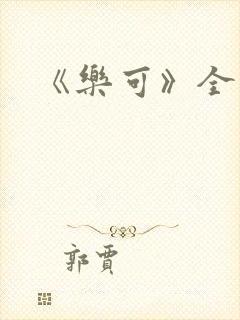 《樂可》全
郭賈